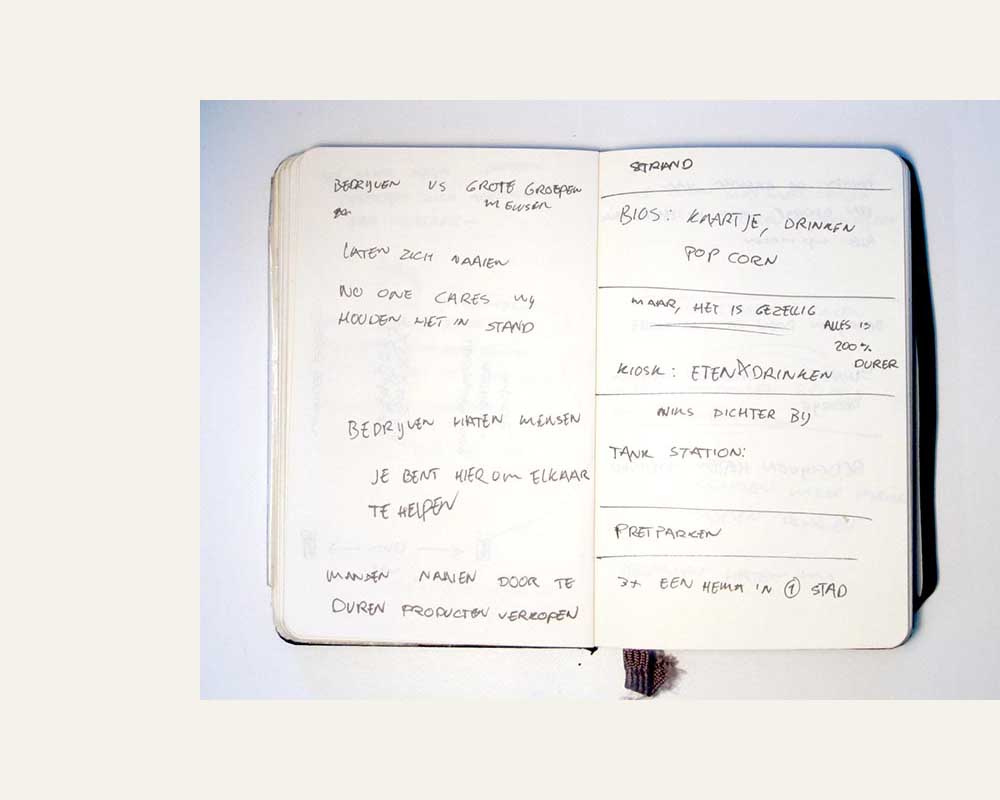 BEDRIJVEN VS GROTE GROEPEN
MENSEN
LATEN ZICH NAAIEN
NO ONE CARES WIJ
HOUDEN HET IN STAND
BEDRIJVEN HATEN MENSEN
JE BENT HIER OM ELKAAR
TE HELPEN
NAAIEN DOOR TE
DUREN PRODUCTEN VERKOPEN
STRAND
BIOS: KAARTJE, DRINKEN
POP CORN
MAAR, HET IS GEZELLIG
ALLES IS
200%
DURER
KIOSK: ETEN & DRINKEN
NIKS DICHTER BIJ
TANK STATION:
PRETPARKEN
3x EEN HEMA IN 1 STAD